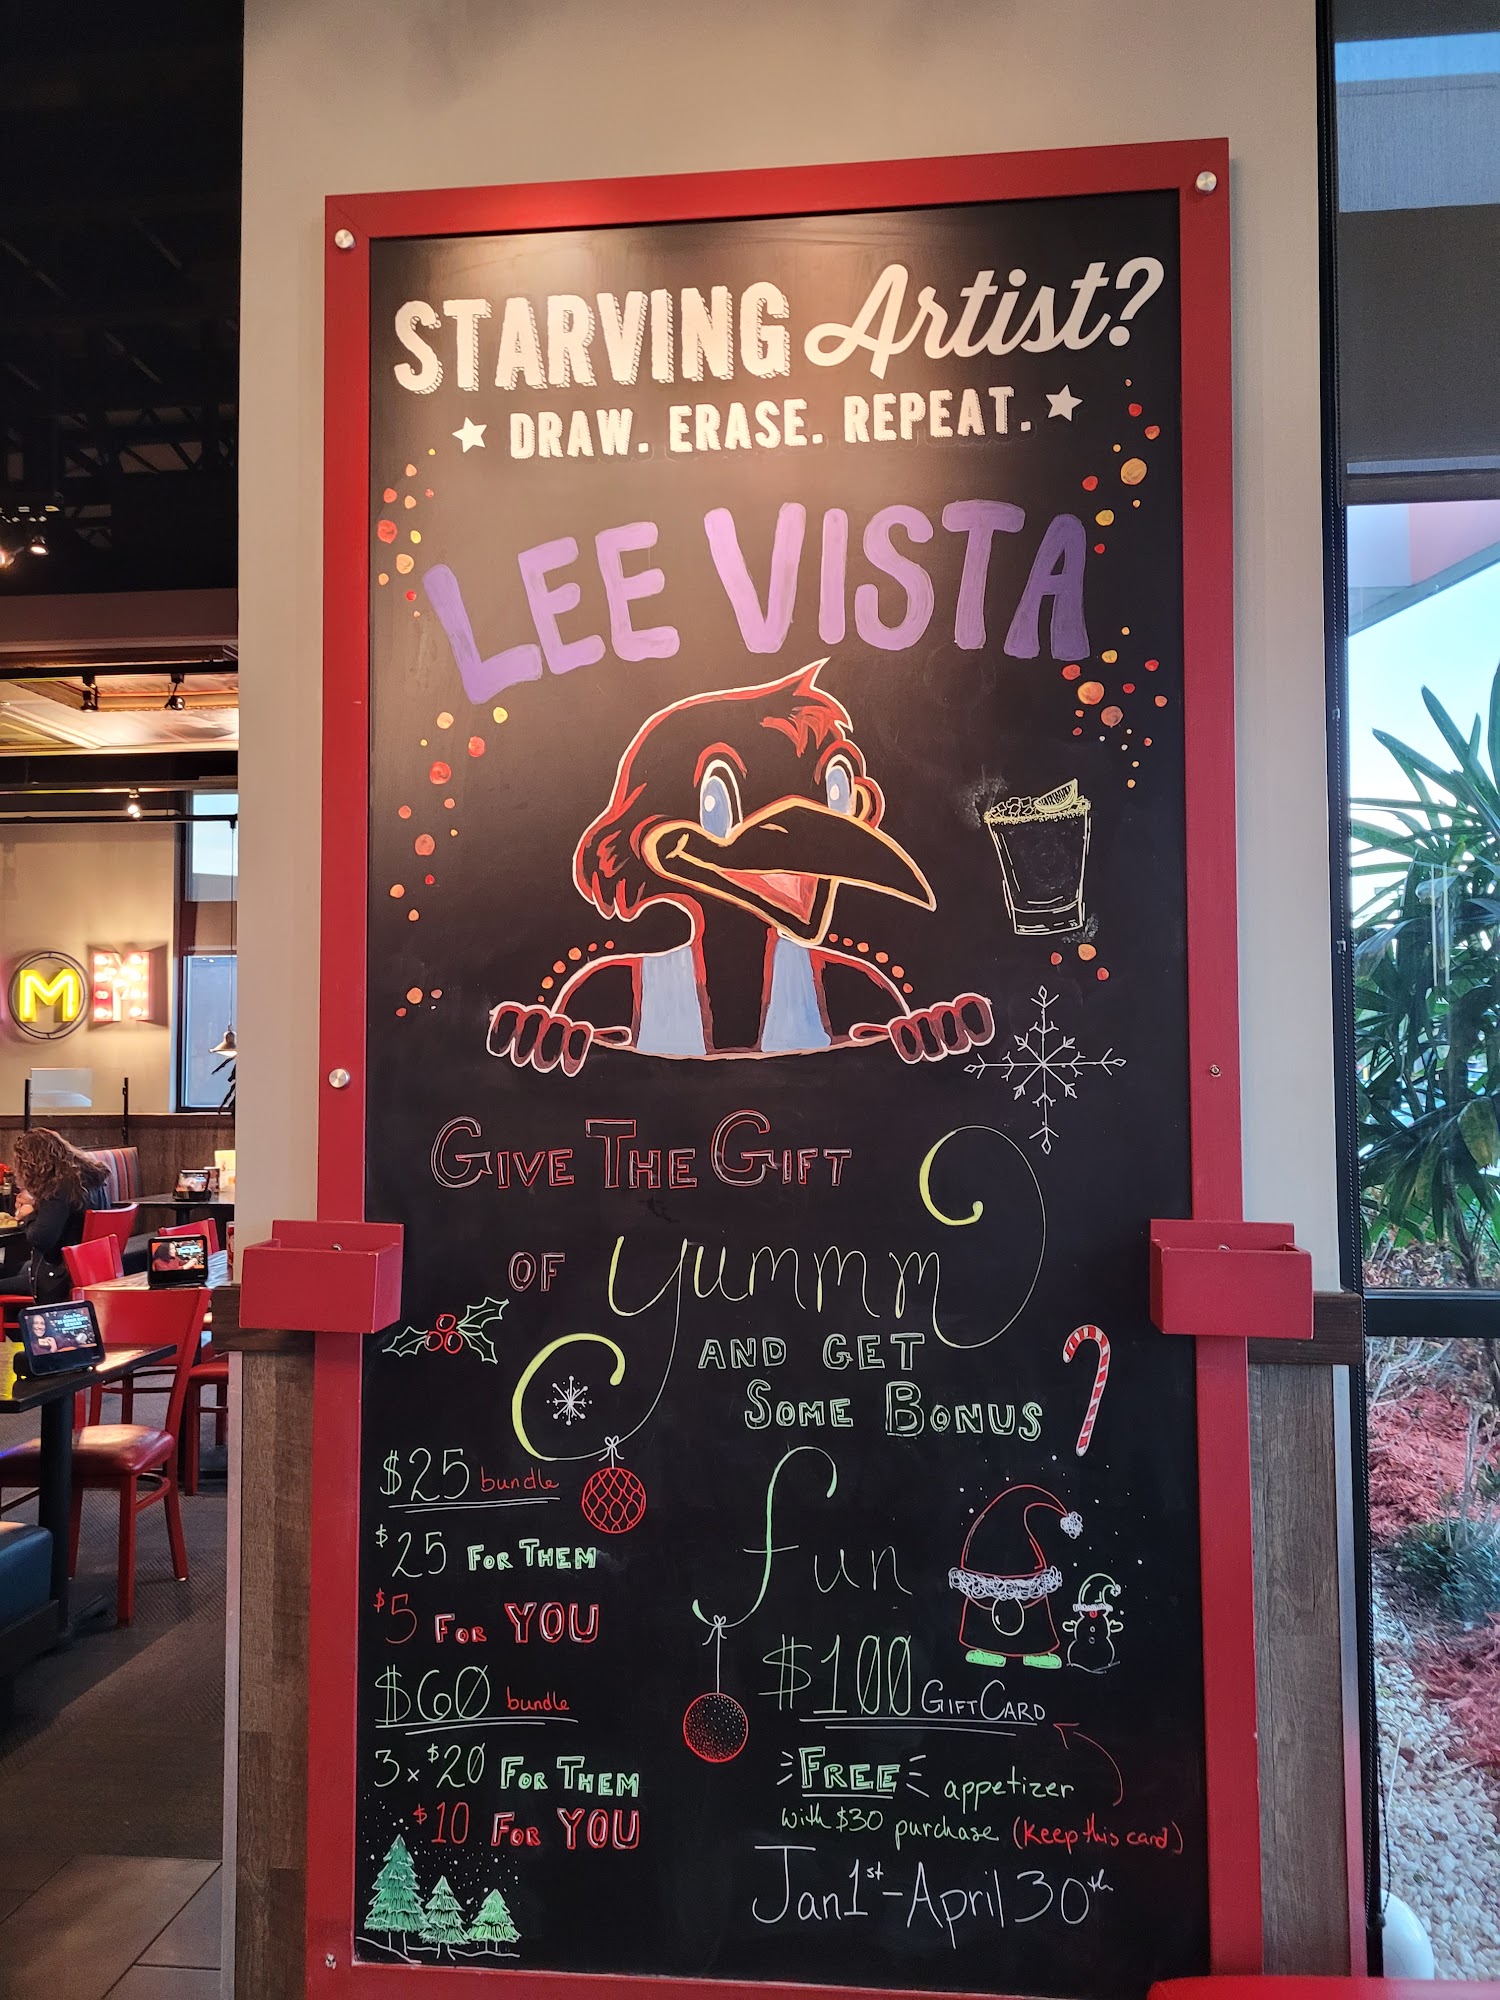 STARVING Artist?
DRAW. ERASE. REPEAT.
LEE VISTA
GIVE THE GIFT
OF yummm
AND GET
SOME BONUS
fun
$25 bundle
$25 FOR THEM
$5 FOR YOU
$60 bundle
3 x $20 FOR THEM
$10 FOR YOU
$100 GIFT CARD
FREE appetizer
with $30 purchase (Keep this card)
Jan 1st - April 30th
M Y